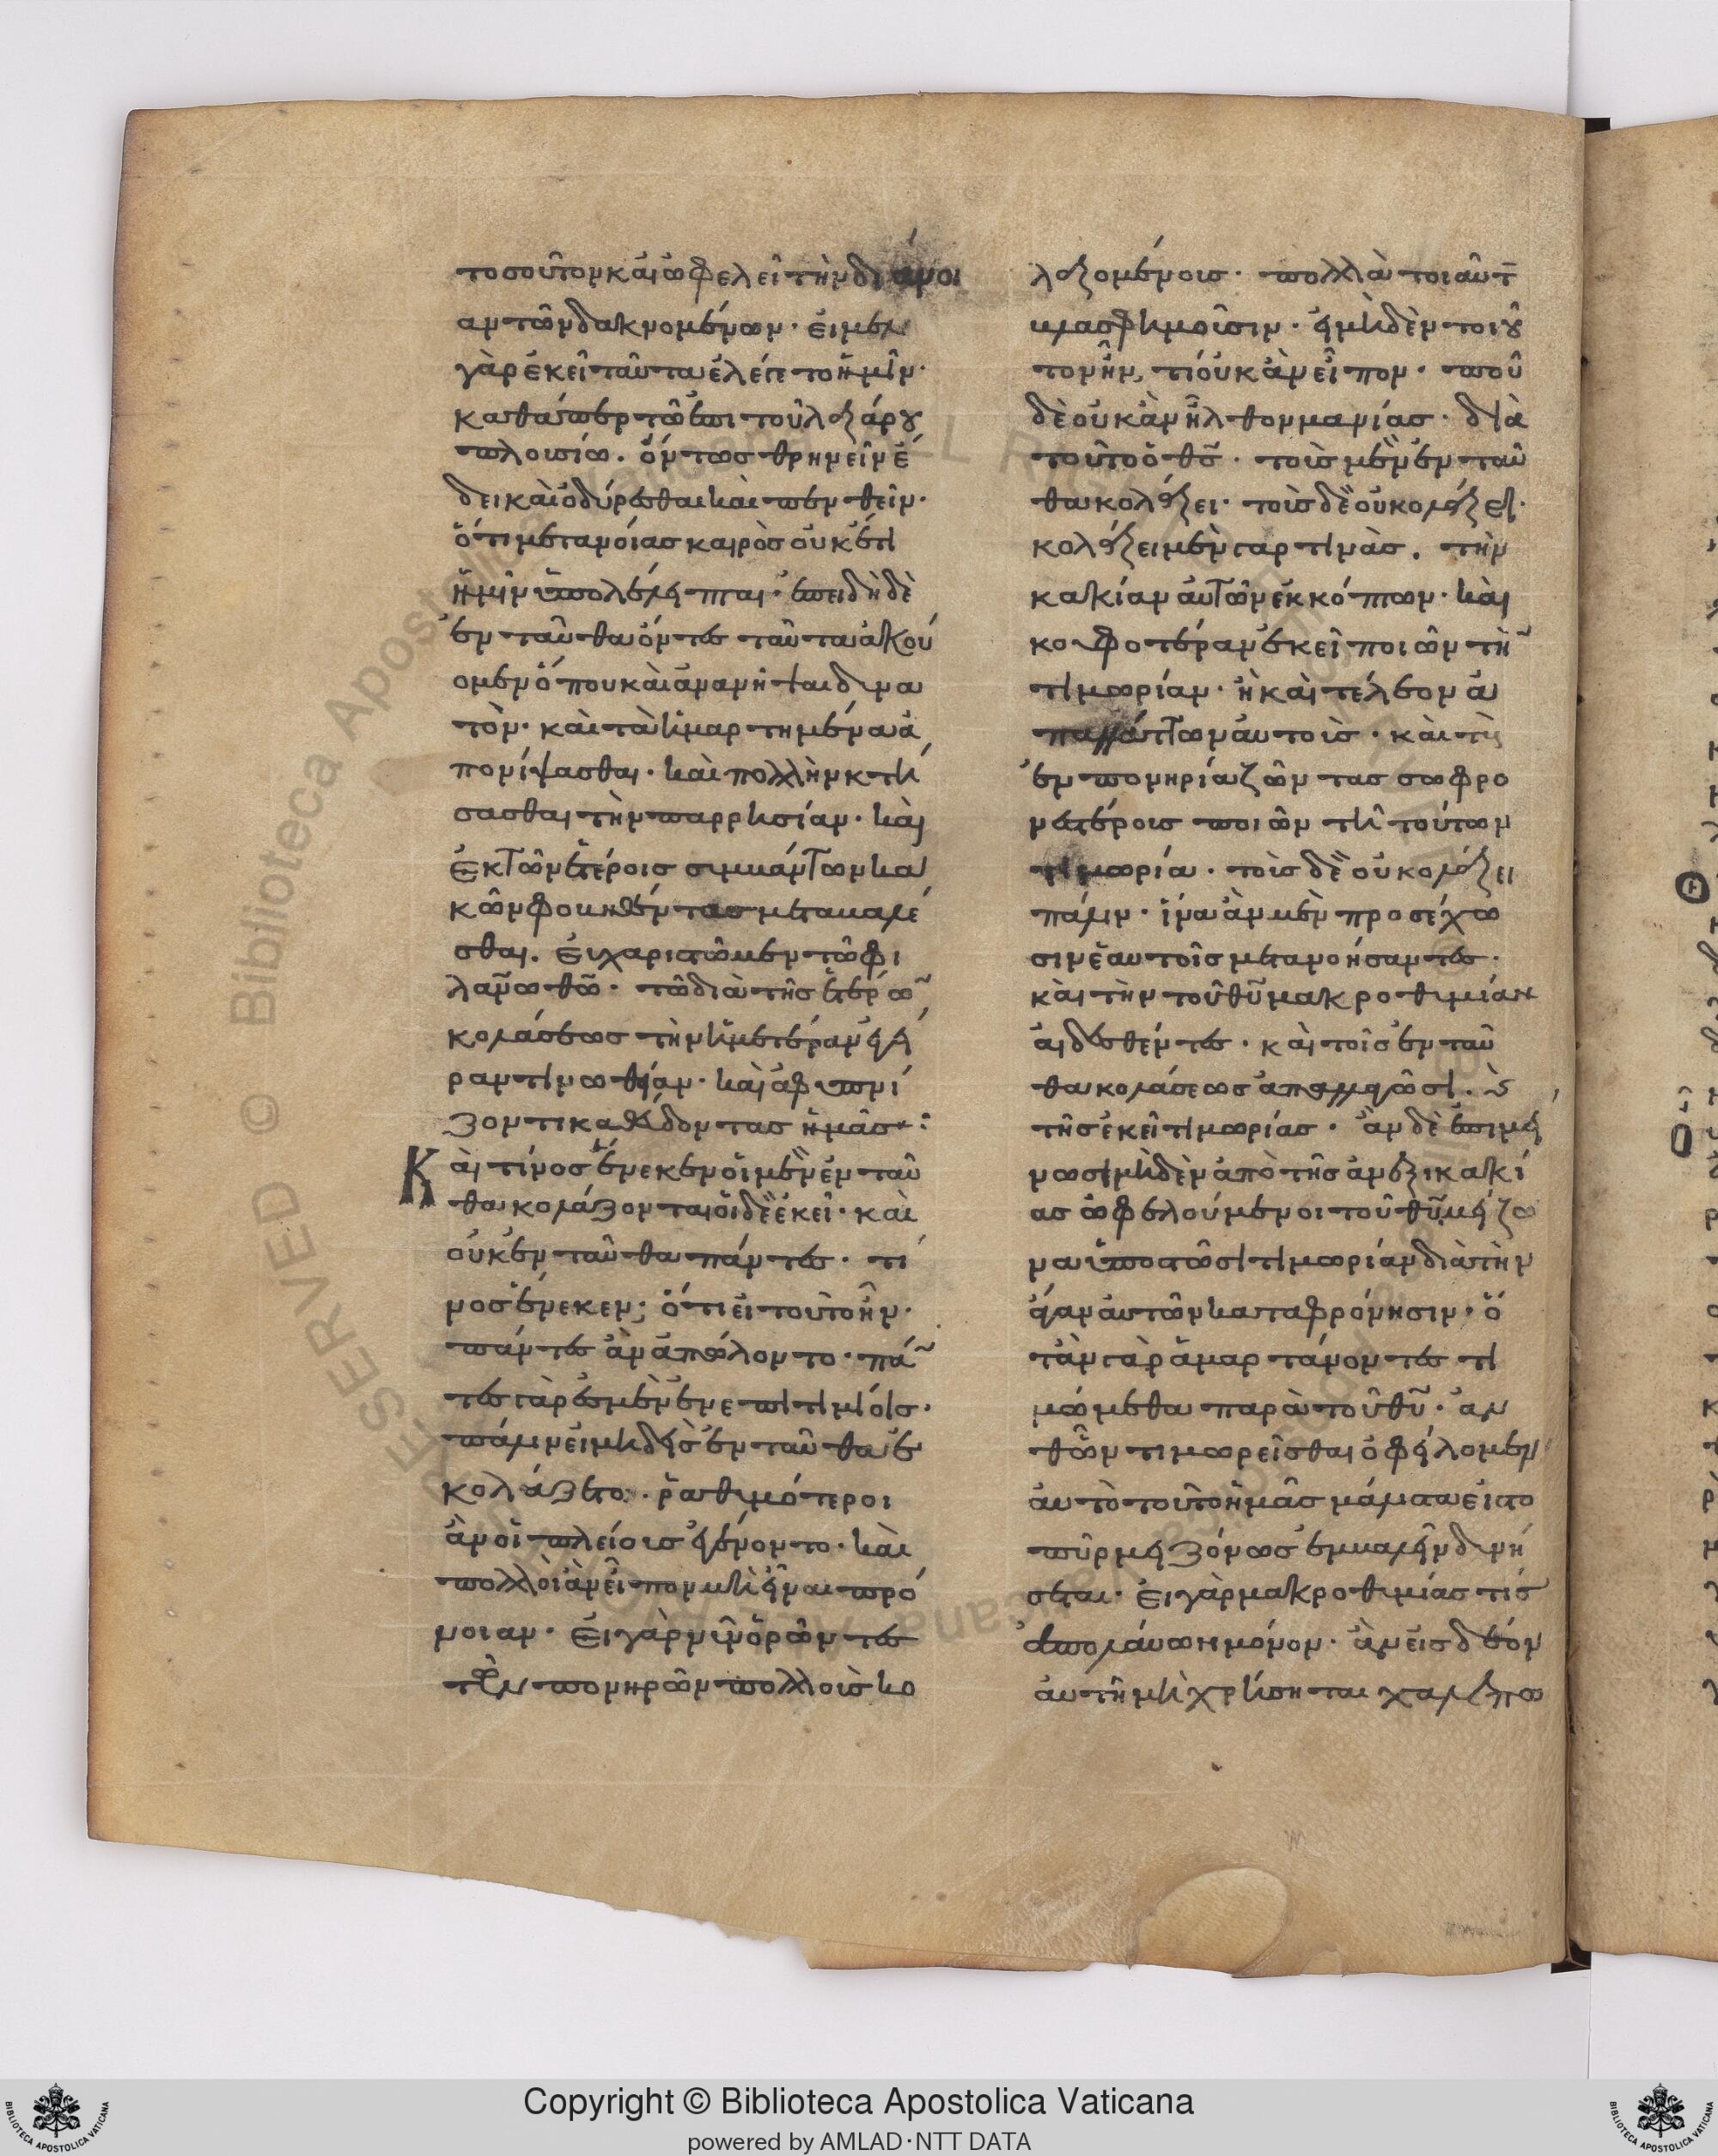 τοσοῦτον καὶ ὠφελεῖ τὴν διάνοι
αν τῶν δακνομένων· εἰ μὲν
γὰρ ἐκεῖ ταῦτα ἐλέγετο ἡμῖν·
καθάπερ τῶ ἐπι τοῦ λαζάρου
πλουσίω. ὄντως θρηνεῖν ἔ
δει καὶ ὀδύρεσθαι καὶ πενθεῖν·
ὅτι μετανοίας καιρὸς οὐκ έτι
ἡμῖν ὑπολέλειπται· ἐπειδὴ δὲ
ἐνταῦθα ὄντες ταῦτα ἀκού
ομεν ὅπου καὶ ἀνανῆψαι δυνα
τὸν· καὶ τὰ ἡμαρτημένα ἀ
πονίψασθαι· καὶ πολλὴν κτή
σασθαι τὴν παρρησίαν· καὶ
ἐκ τῶν ἑτέροις συμβάντων κα
κῶν φοβηθέντας μεταβαλέ
σθαι. εὐχαριστῶμεν τῶ φι
λανω θῶ· τῶ διὰ τῆς ἑτέρων
κολάσεως τὴν ἡμετέραν
ζοντι καθεύδοντας ἡμᾶς:
Καὶ τίνος ἕνεκεν οἱ μὲν ἐνταῦ
θα κολάζονται οἱ δὲ ἐκεῖ· καὶ
οὐκ ἐνταῦθα πάντες· τί
νος ἕνεκεν; ὅτι εἰ τοῦτο ἦν·
πάντες ἂν ἀπώλοντο· πάν
τες γὰρ ἐσμὲν ἐν ἐπιτιμίοις·
πάλιν εἰ μηδεὶς ἐνταῦθα ἐ
κολάζετο· ῥαθυμότεροι
ἂν οἱ πλείους ἐγένοντο· καὶ
πολλοὶ ἂν εἶπον μὴ εἶναι πρό
νοιαν· εἰ γὰρ νῦν ὁρῶντες
τῶν πονηρῶν πολλοὺς κο
λαζομένους· πολλὰ τοιαῦτ
βλασφημοῦσιν· εἰ μηδὲν τοιοῦ
τον ἦν, τί οὐκ ἂν εἶπον· ποῦ
δὲ οὐκ ἂν ἦλθον μανίας· διὰ
τοῦτο ὁ θς· τοὺς μὲν ἐνταῦ
θα κολάζει· τοὺς δὲ οὐ κολάζει·
κολάζει μὲν γάρ τινὰς. τὴν
κακίαν αὐτῶν ἐκκόπτων· καὶ
κουφοτέραν ἐκεῖ ποιῶν τὴν
τιμωρίαν· ἢ καὶ τέλεον ἀ
παλλάττων αὐτοὺς· καὶ τοὺς
ἐν πονηρία ζῶντας σωφρο
νεστέρους ποιῶν τῆ τούτων
τιμωρία· τοὺς δὲ οὐ κολάζει
πάλιν· ἵνα ἂν μὲν προσέχω
σιν ἑαυτοῖς μετανοήσαντες·
καὶ τὴν τοῦ θυ μακροθυμίαν
αἰδεσθέντες· καὶ τῆς ἐνταῦ
θα κολάσεως ἀπαλλαγῶσι. καὶ
τῆς ἐκεῖ τιμωρίας· ἂν δὲ ἐπιμεί
νωσι μηδὲν ἀπὸ τῆς ἀνεξικακί
ας ὠφελούμενοι τοῦ θυ μείζο
να ὑποστῶσι τιμωρίαν διὰ τὴν
ἄγαν αὐτῶν καταφρόνησιν· ὅ
ταν γὰρ ἁμαρτάνοντες τι
μώμεθα παρὰ τοῦ θυ· ἀν
θ' ὧν τιμωρεῖσθαι ὀφείλομεν
αὐτὸ τοῦτο ἡμᾶς μάλιστα εἰς τὸ
πῦρ μειζόνως ἐμβαλεῖν δυνή
σεται· εἰ γὰρ μακροθυμίας τίς
ἀπολαύων μόνον· ἂν εἰς δέον
αὐτῆ μὴ χρήσηται χαλεπω